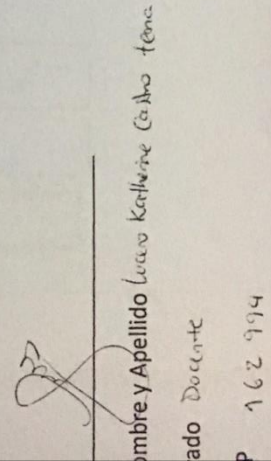 ombre y Apellido Lucero Katherine Castro tena
ado Docente
P 162 994